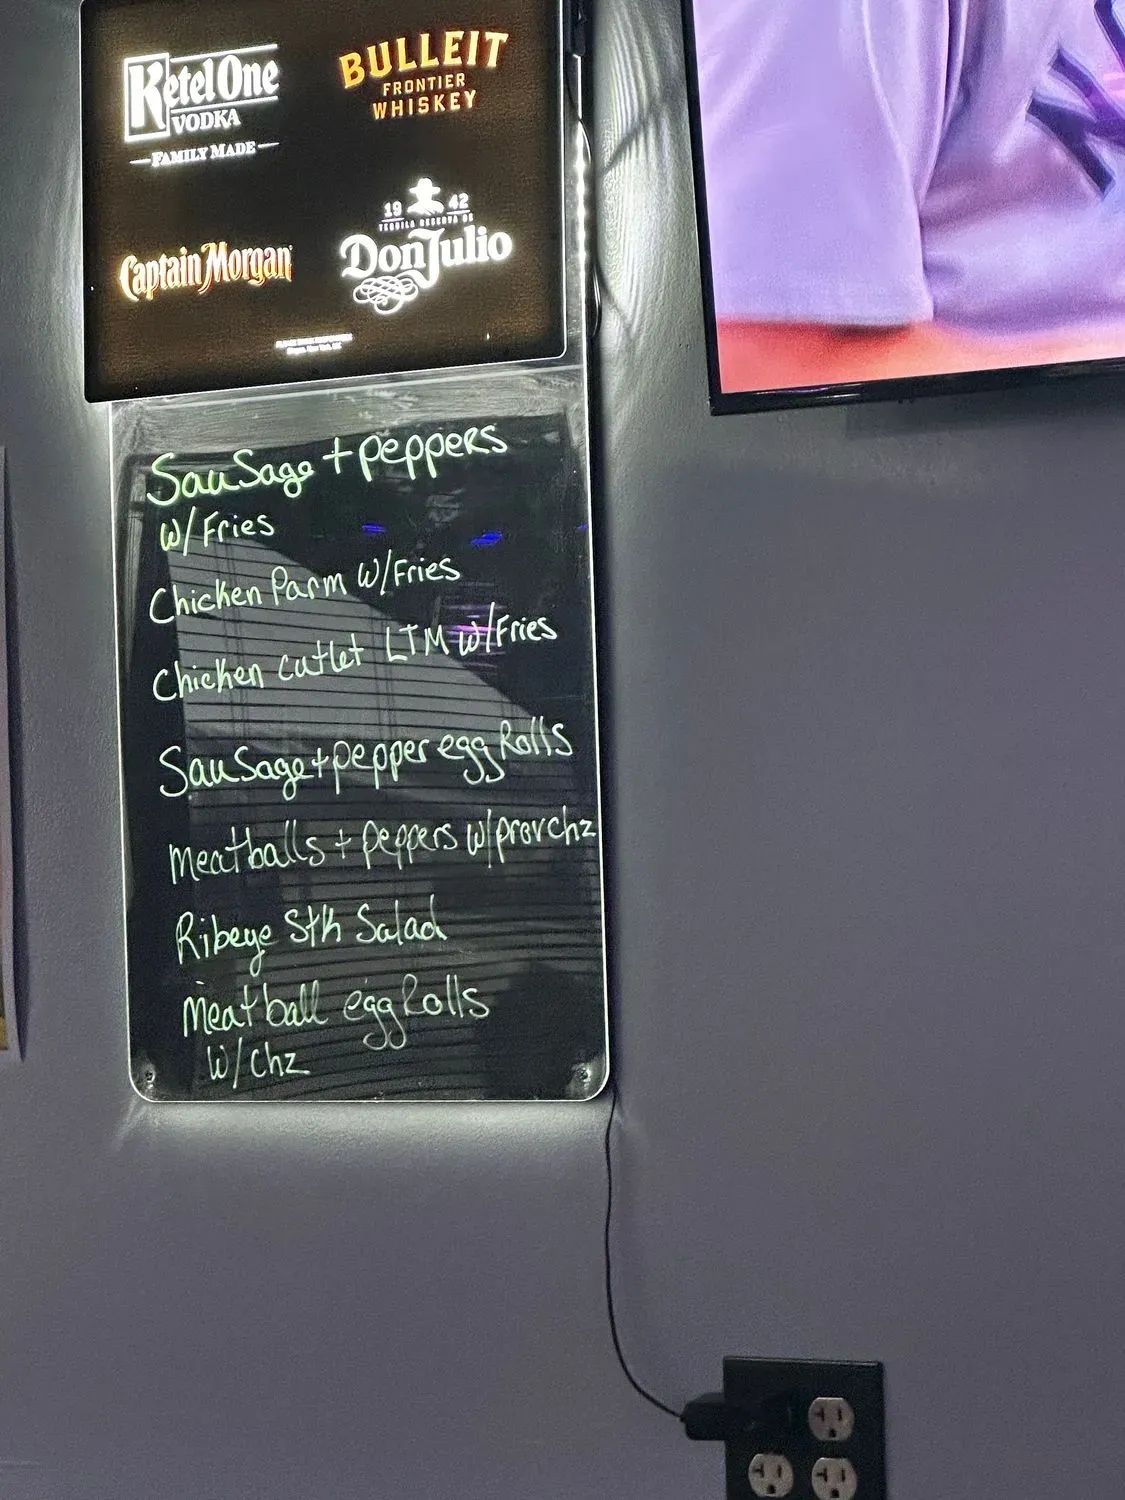 Ketel One
VODKA
FAMILY MADE
BULLEIT
FRONTIER
WHISKEY
Captain Morgan
19 42
TEQUILA RESERVA DE
Don Julio
Sausage + peppers
w/Fries
Chicken Parm w/Fries
Chicken cutlet LTM w/Fries
Sausage + pepper egg Rolls
meatballs + peppers w/prov chz
Ribeye Stk Salad
meatball egg Rolls
w/chz